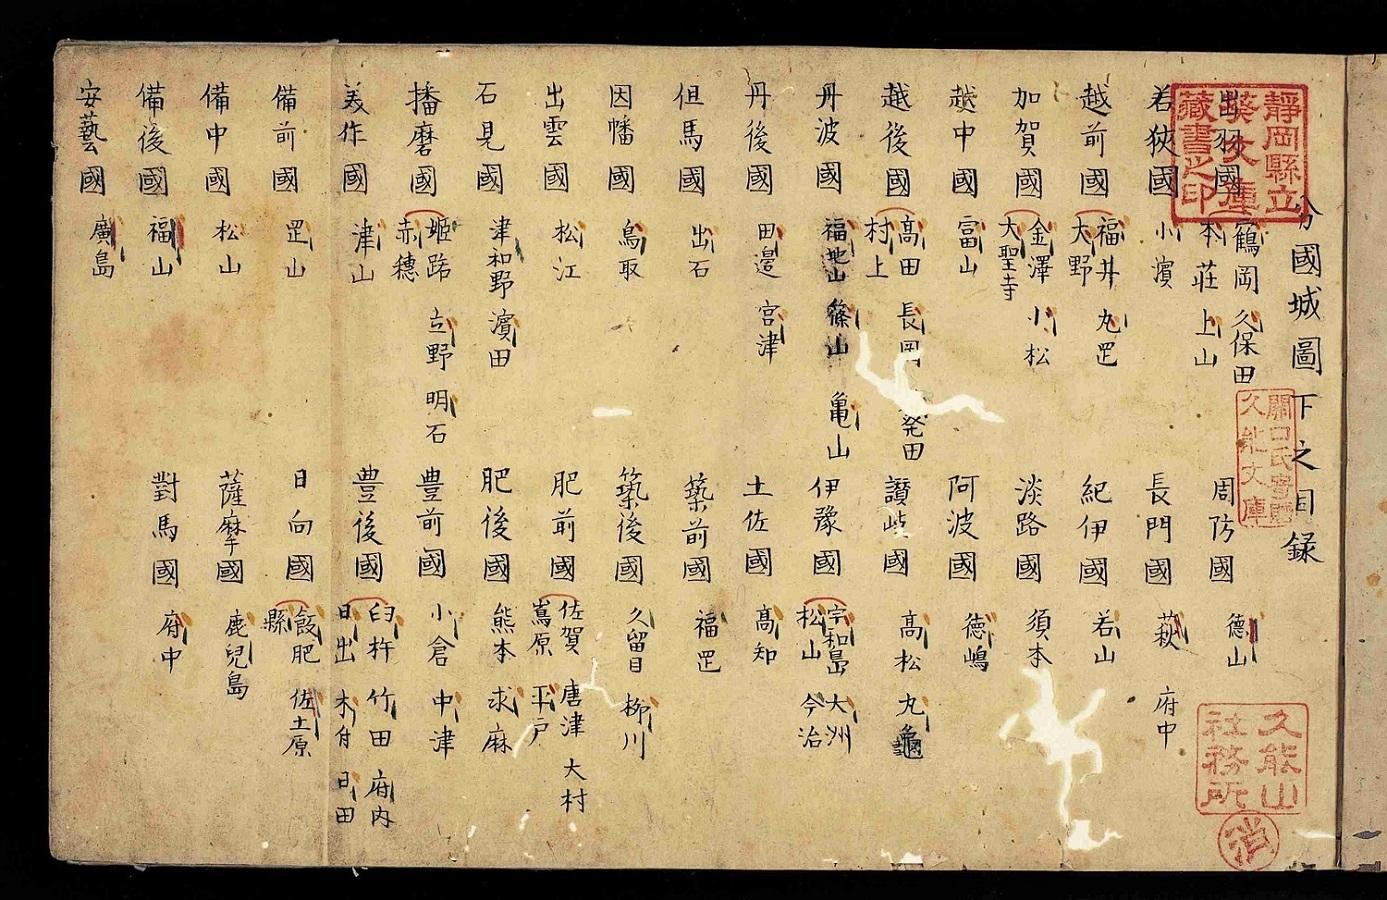 分國城圖下之目録
出羽國 鶴岡 久保田 本荘 上山
若狹國 小濱
越前國 福井 丸罡 大野
加賀國 金澤 小松 大聖寺
越中國 富山
越後國 高田 長岡 発田 村上
丹波國 福地山 篠山 亀山
丹後國 田邉 宮津
但馬國 出石
因幡國 鳥取
出雲國 松江
石見國 津和野 濱田
播磨國 姫路 立野 明石 赤穗
美作國 津山
備前國 罡山
備中國 松山
備後國 福山
安藝國 廣島
周防國 德山
長門國 萩 府中
紀伊國 若山
淡路國 須本
阿波國 德嶋
讃岐國 高松 丸龜
伊豫國 宇和島 大洲 松山 今治
土佐國 高知
築前國 福罡
築後國 久留目 柳川
肥前國 佐賀 唐津 大村 嶌原 平戸
肥後國 熊本 求麻
豊前國 小倉 中津
豊後國 臼杵 竹田 府内 日出 木付 日田
日向國 飫肥 佐土原 縣
薩摩國 鹿兒島
對馬國 府中
靜岡縣立
葵文庫
藏書之印
關口氏寄贈
久能文庫
久能山
社務所
消